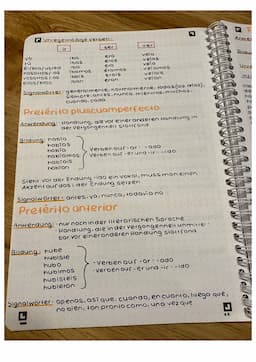 Unregelmäßige Verben:
ir ser ver
yo iba era veía
tú ibas eras veías
él/ella/usted iba era veía
nosotros/as íbamos éramos veíamos
vosotros/as ibais erais veíais
ellos/ellas iban eran veían
Signalwörter: generalmente, normalmente, todos los días,
siempre, antes, nunca, mientras, muchas
cuando, cada
Pretérito pluscuamperfecto
Anwendung: Handlung, die vor einer anderen Handlung in
der Vergangenheit stattfand
Bildung: había
habías
había - Verben auf -ar → -ado
habíamos - Verben auf -er und -ir → -ido
habíais
habían
Steht vor der Endung -ido ein Vokal, muss man einen
Akzent auf das i der Endung setzen
Signalwörter: antes, ya, nunca, todavía no
Pretérito anterior
Anwendung: nur noch in der literarischen Sprache
Handlung, die in der Vergangenheit unmittel-
bar vor einer anderen Handlung stattfand
Bildung: hube
hubiste
hubo - Verben auf -ar → -ado
hubimos - Verben auf -er und -ir → -ido
hubisteis
hubieron
Signalwörter: apenas, así que, cuando, en cuanto, luego que,
no bien, tan pronto como, una vez que